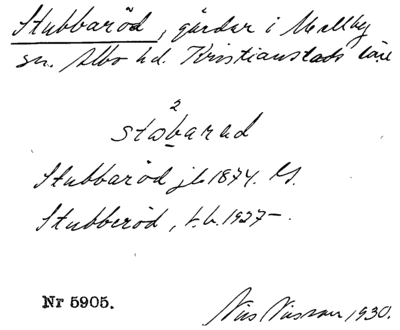 Stubbaröd, gårdar i Mellby
sn. Albo hd. Kristianstads län
2
stobarud
Stubbaröd jb 1874. LS.
Stubberöd, t.b. 1927-.
Nr 5905.
Nils Nilsson 1930.